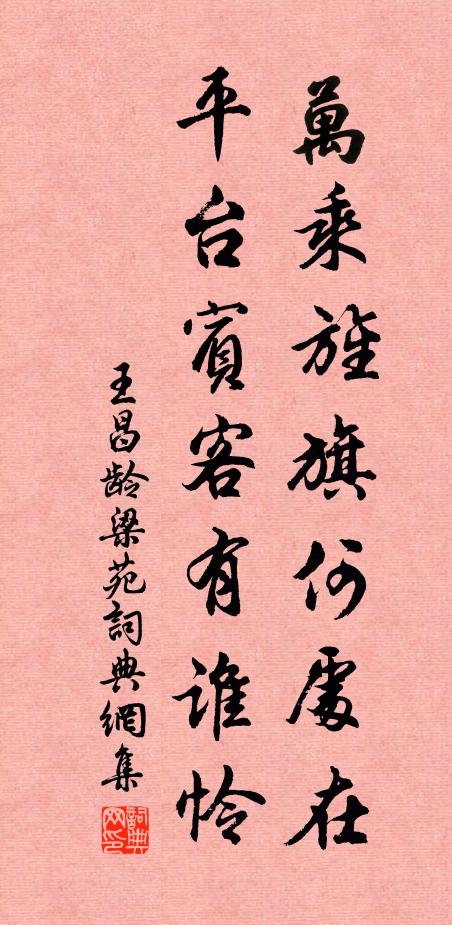 萬乘旌旗何處在
平台賓客有誰怜
王昌龄梁苑詞典網集
詞典网印